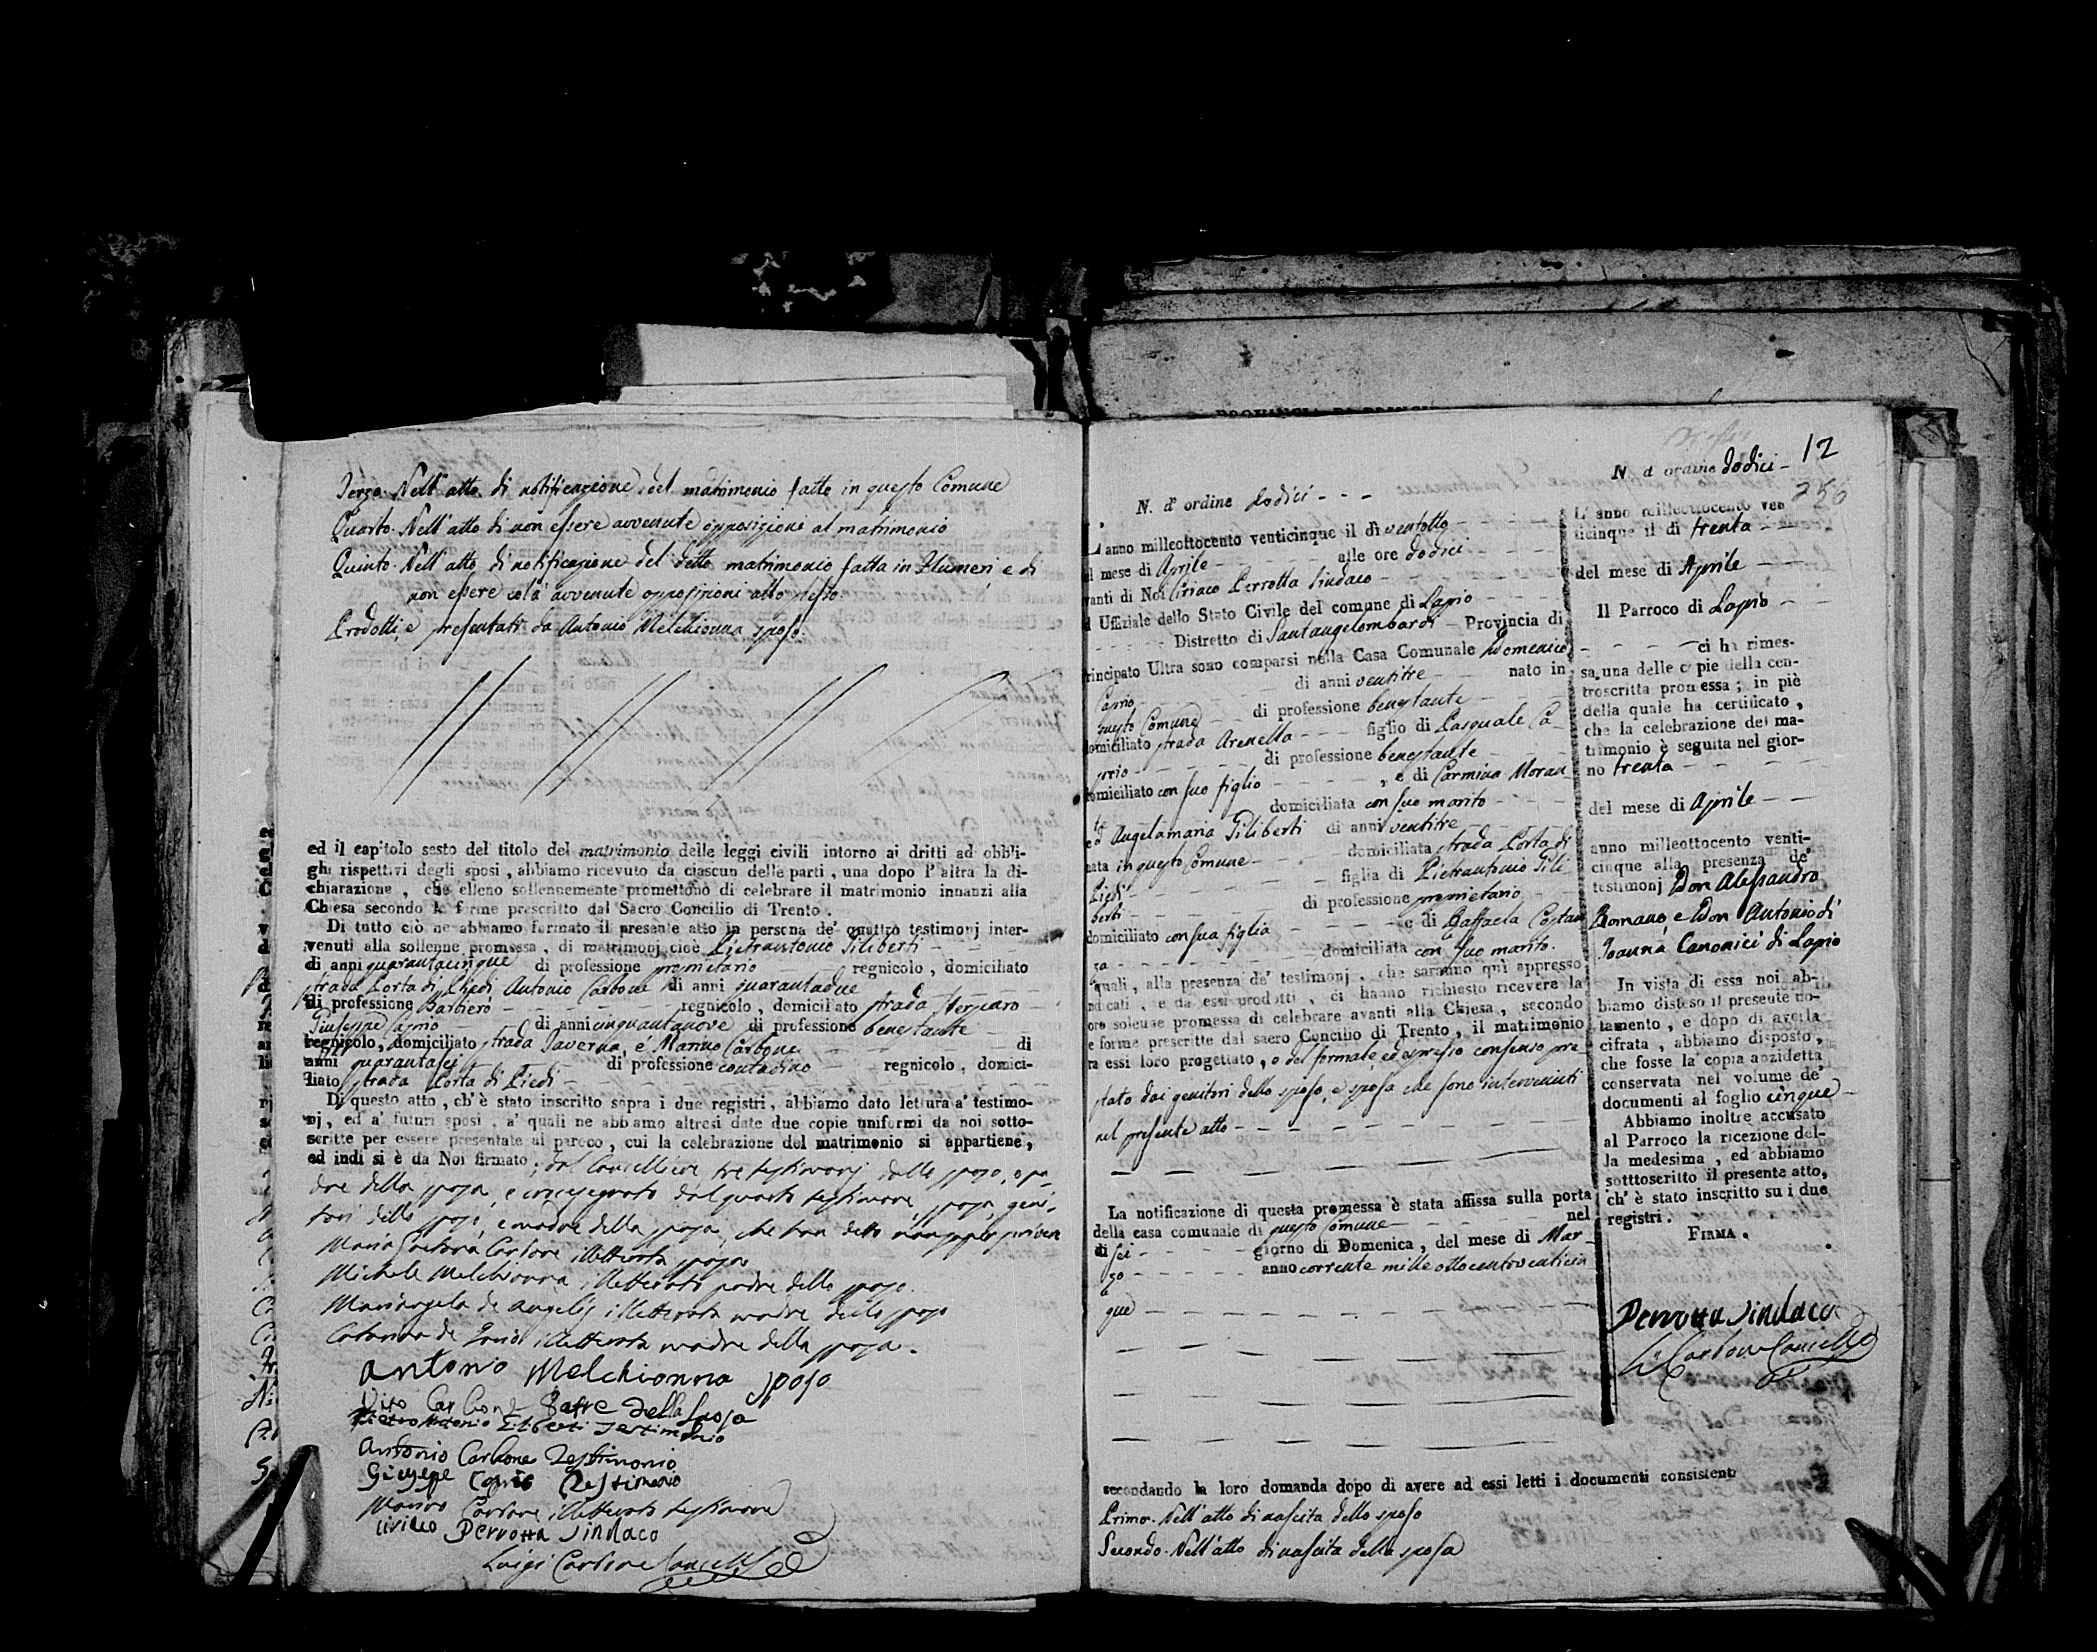 Terzo. Nell'atto di notificazione del matrimonio fatto in questo Comune
Quarto. Nell'atto di non essere avvenute opposizioni al matrimonio
Quinto. Nell'atto di notificazione del detto matrimonio fatta in Flumeri e di
non essere colà avvenute opposizioni allo stesso
Prodotti, e presentati da Antonio Melchionna sposo.
ed il capitolo sesto del titolo del matrimonio delle leggi civili intorno ai dritti ad obbli-
ghi rispettivi degli sposi, abbiamo ricevuto da ciascun delle parti, una dopo l'altra la di-
chiarazione, che elleno sollennemente promettono di celebrare il matrimonio innanzi alla
Chiesa secondo le forme prescritto dal Sacro Concilio di Trento.
Di tutto ciò ne abbiamo formato il presente atto in persona de' quattro testimonj inter-
venuti alla sollenne promessa, di matrimonj cioè Pietrantonio Filiberti
di anni quarantacinque di professione proprietario regnicolo, domiciliato
strada Porta di Piedi Antonio Carbone di anni quarantadue
di professione Barbiero regnicolo, domiciliato strada
Giuseppe Caprio di anni cinquantanove di professione benestante
regnicolo, domiciliato strada Taverna, e Marino Carbone di
anni quarantasei di professione contadino regnicolo, domici-
liato strada Porta di Piedi
Di questo atto, ch'è stato inscritto sopra i due registri, abbiamo dato lettura a' testimo-
nj, ed a' futuri sposi, a' quali ne abbiamo altresì date due copie uniformi da noi sotto-
scritte per essere presentate al parroco, cui la celebrazione del matrimonio si appartiene,
ed indi si è da Noi firmato, dal Cancelliere, tre testimonj dello sposo, e pa-
dre della sposa, e crocesegnato dal quarto testimone, sposa, geni-
tori dello sposo, e madre della sposa, che han detto non saper scrivere
Maria Gaetana Carbone illetterata sposa
Michele Melchionna illetterato padre dello sposo.
Mariangela de Angelis illetterata madre dello sposo
Catarina de illetterata madre della sposa.
Antonio Melchionna sposo
Vito Carbone Patre della sposa
Pietrantonio Filiberti Testimonio
Antonio Carbone Testimonio
Giuseppe Caprio Testimonio
Marino Carbone illetterato testimone
Ciriaco Perrotta Sindaco
Luigi Carbone Cancelliere
12
256
N. d' ordine dodici
L'anno milleottocento venticinque il dì ventotto
l mese di Aprile alle ore dodici
vanti di Noi Ciriaco Perrotta Sindaco
d Uffiziale dello Stato Civile del comune di Lapio
Distretto di Santangelombardi Provincia di
rincipato Ultra sono comparsi nella Casa Comunale Domenico
Caprio di anni ventitre nato in
questo Comune di professione benestante
domiciliato strada Arenella figlio di Pasquale Ca-
prio di professione benestante
domiciliato con suo figlio, e di Carmina Moran-
te domiciliata con suo marito
ed Angelamaria Filiberti di anni ventitre
nata in questo Comune domiciliata strada Porta di
Piedi figlia di Pietrantonio Fili-
berti di professione proprietario
domiciliato con sua figlia e di Raffaela Costan
za domiciliata con suo marito.
quali, alla presenza de' testimonj, che saranno quì appresso
ndicati, e da essi prodotti, ci hanno richiesto ricevere la
oro solenne promessa di celebrare avanti alla Chiesa, secondo
e forme prescritte dal sacro Concilio di Trento, il matrimonio
ra essi loro progettato, o del formale ed espresso consenso pre
stato dai genitori dello sposo, e sposa che sono intervenuti
nel presente atto
La notificazione di questa promessa è stata affissa sulla porta
della casa comunale di questo Comune nel
dì sei giorno di Domenica, del mese di Mar-
zo anno corrente mille ottocentoventicin
que
secondando la loro domanda dopo di avere ad essi letti i documenti consistent
Primo. Nell'atto di nascita dello sposo
Secondo. Nell'atto di nascita della sposa
N. d' ordine dodici
L'anno milleottocento ven
ticinque il dì trenta
del mese di Aprile
Il Parroco di Lapio
ci ha rimes-
sa una delle copie della con-
troscritta promessa; in piè
della quale ha certificato,
che la celebrazione del ma-
trimonio è seguita nel gior-
no trenta
del mese di Aprile
anno milleottocento venti-
cinque alla presenza de'
testimonj Don Alessandro
Romano, e Don Antonio di
Joanna Canonici di Lapio
In vista di essa noi ab-
biamo disteso il presente no-
tamento, e dopo di averla
cifrata, abbiamo disposto,
che fosse la copia anzidetta
conservata nel volume de'
documenti al foglio cinque
Abbiamo inoltre accusato
al Parroco la ricezione del-
la medesima, ed abbiamo
sotttoscritto il presente atto,
ch'è stato inscritto su i due
registri.
FIRMA.
Perrotta Sindaco
L. Carbone Cancellie